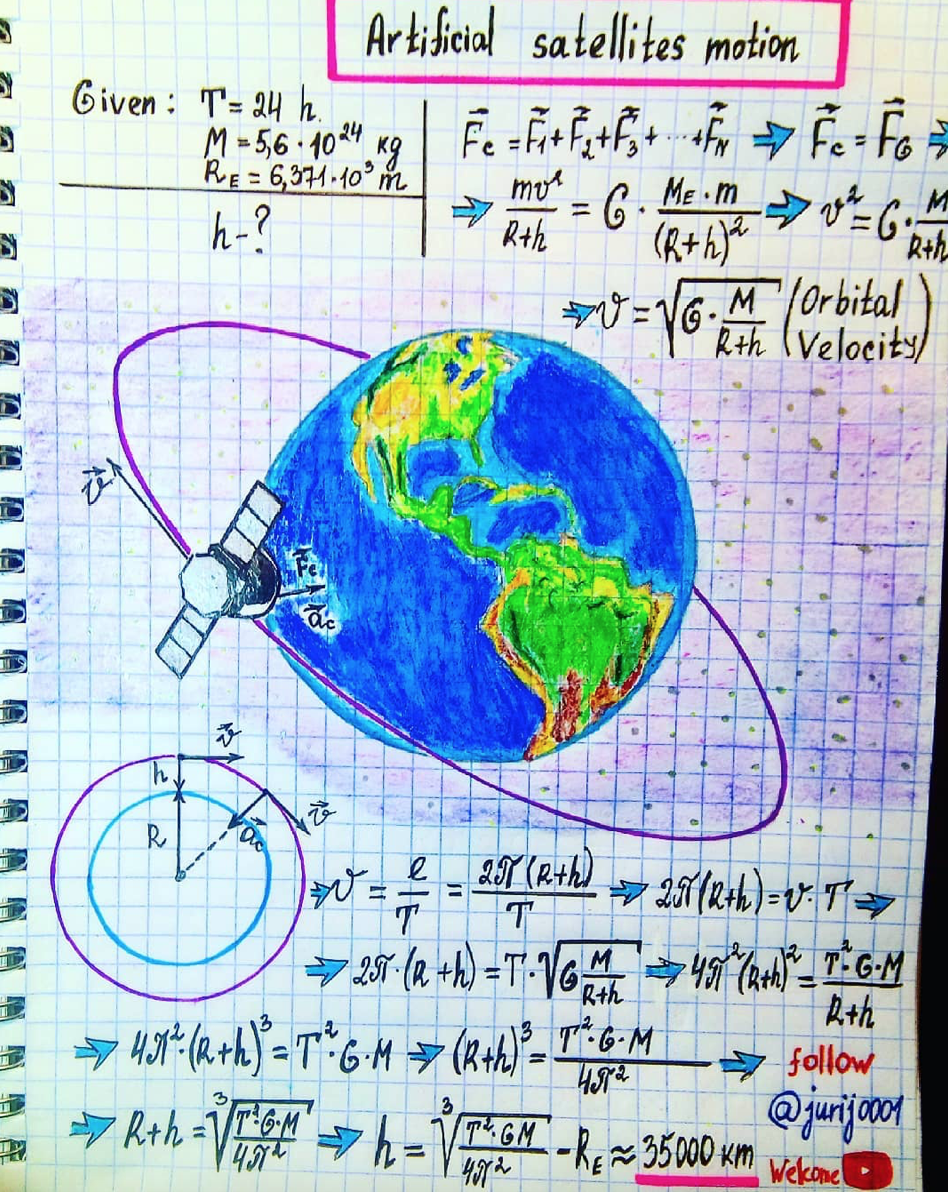 Artificial satellites motion
Given: T = 24 h.
M = 5,6 · 10²⁴ kg
R_E = 6,371 · 10³ m
h - ?
F⃗c = F⃗₁ + F⃗₂ + F⃗₃ + ··· + F⃗_N ⇒ F⃗c = F⃗_G ⇒
⇒ mv²/(R+h) = G · (M_E · m)/(R+h)² ⇒ v² = G · M/(R+h)
⇒ v = √(G · M/(R+h)) (Orbital
Velocity)
v⃗
F⃗c
a⃗c
v⃗
h
R
a⃗c
v⃗
⇒ v = l/T = 2π(R+h)/T ⇒ 2π(R+h) = v · T ⇒
⇒ 2π · (R+h) = T · √(G M/(R+h)) ⇒ 4π²(R+h)² = T² · G · M/(R+h)
⇒ 4π² · (R+h)³ = T² · G · M ⇒ (R+h)³ = T² · G · M/4π² ⇒
follow
@jurij0001
⇒ R+h = ³√(T² · G · M/4π²) ⇒ h = ³√(T² · GM/4π²) - R_E ≈ 35000 km
Welcome